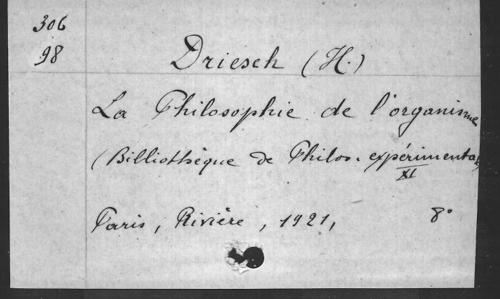 306
98
Driesch (H.)
La Philosophie de l'organisme
(Billiothèque de Philos. expérimentale
XI
Paris, Rivière, 1921, 8°